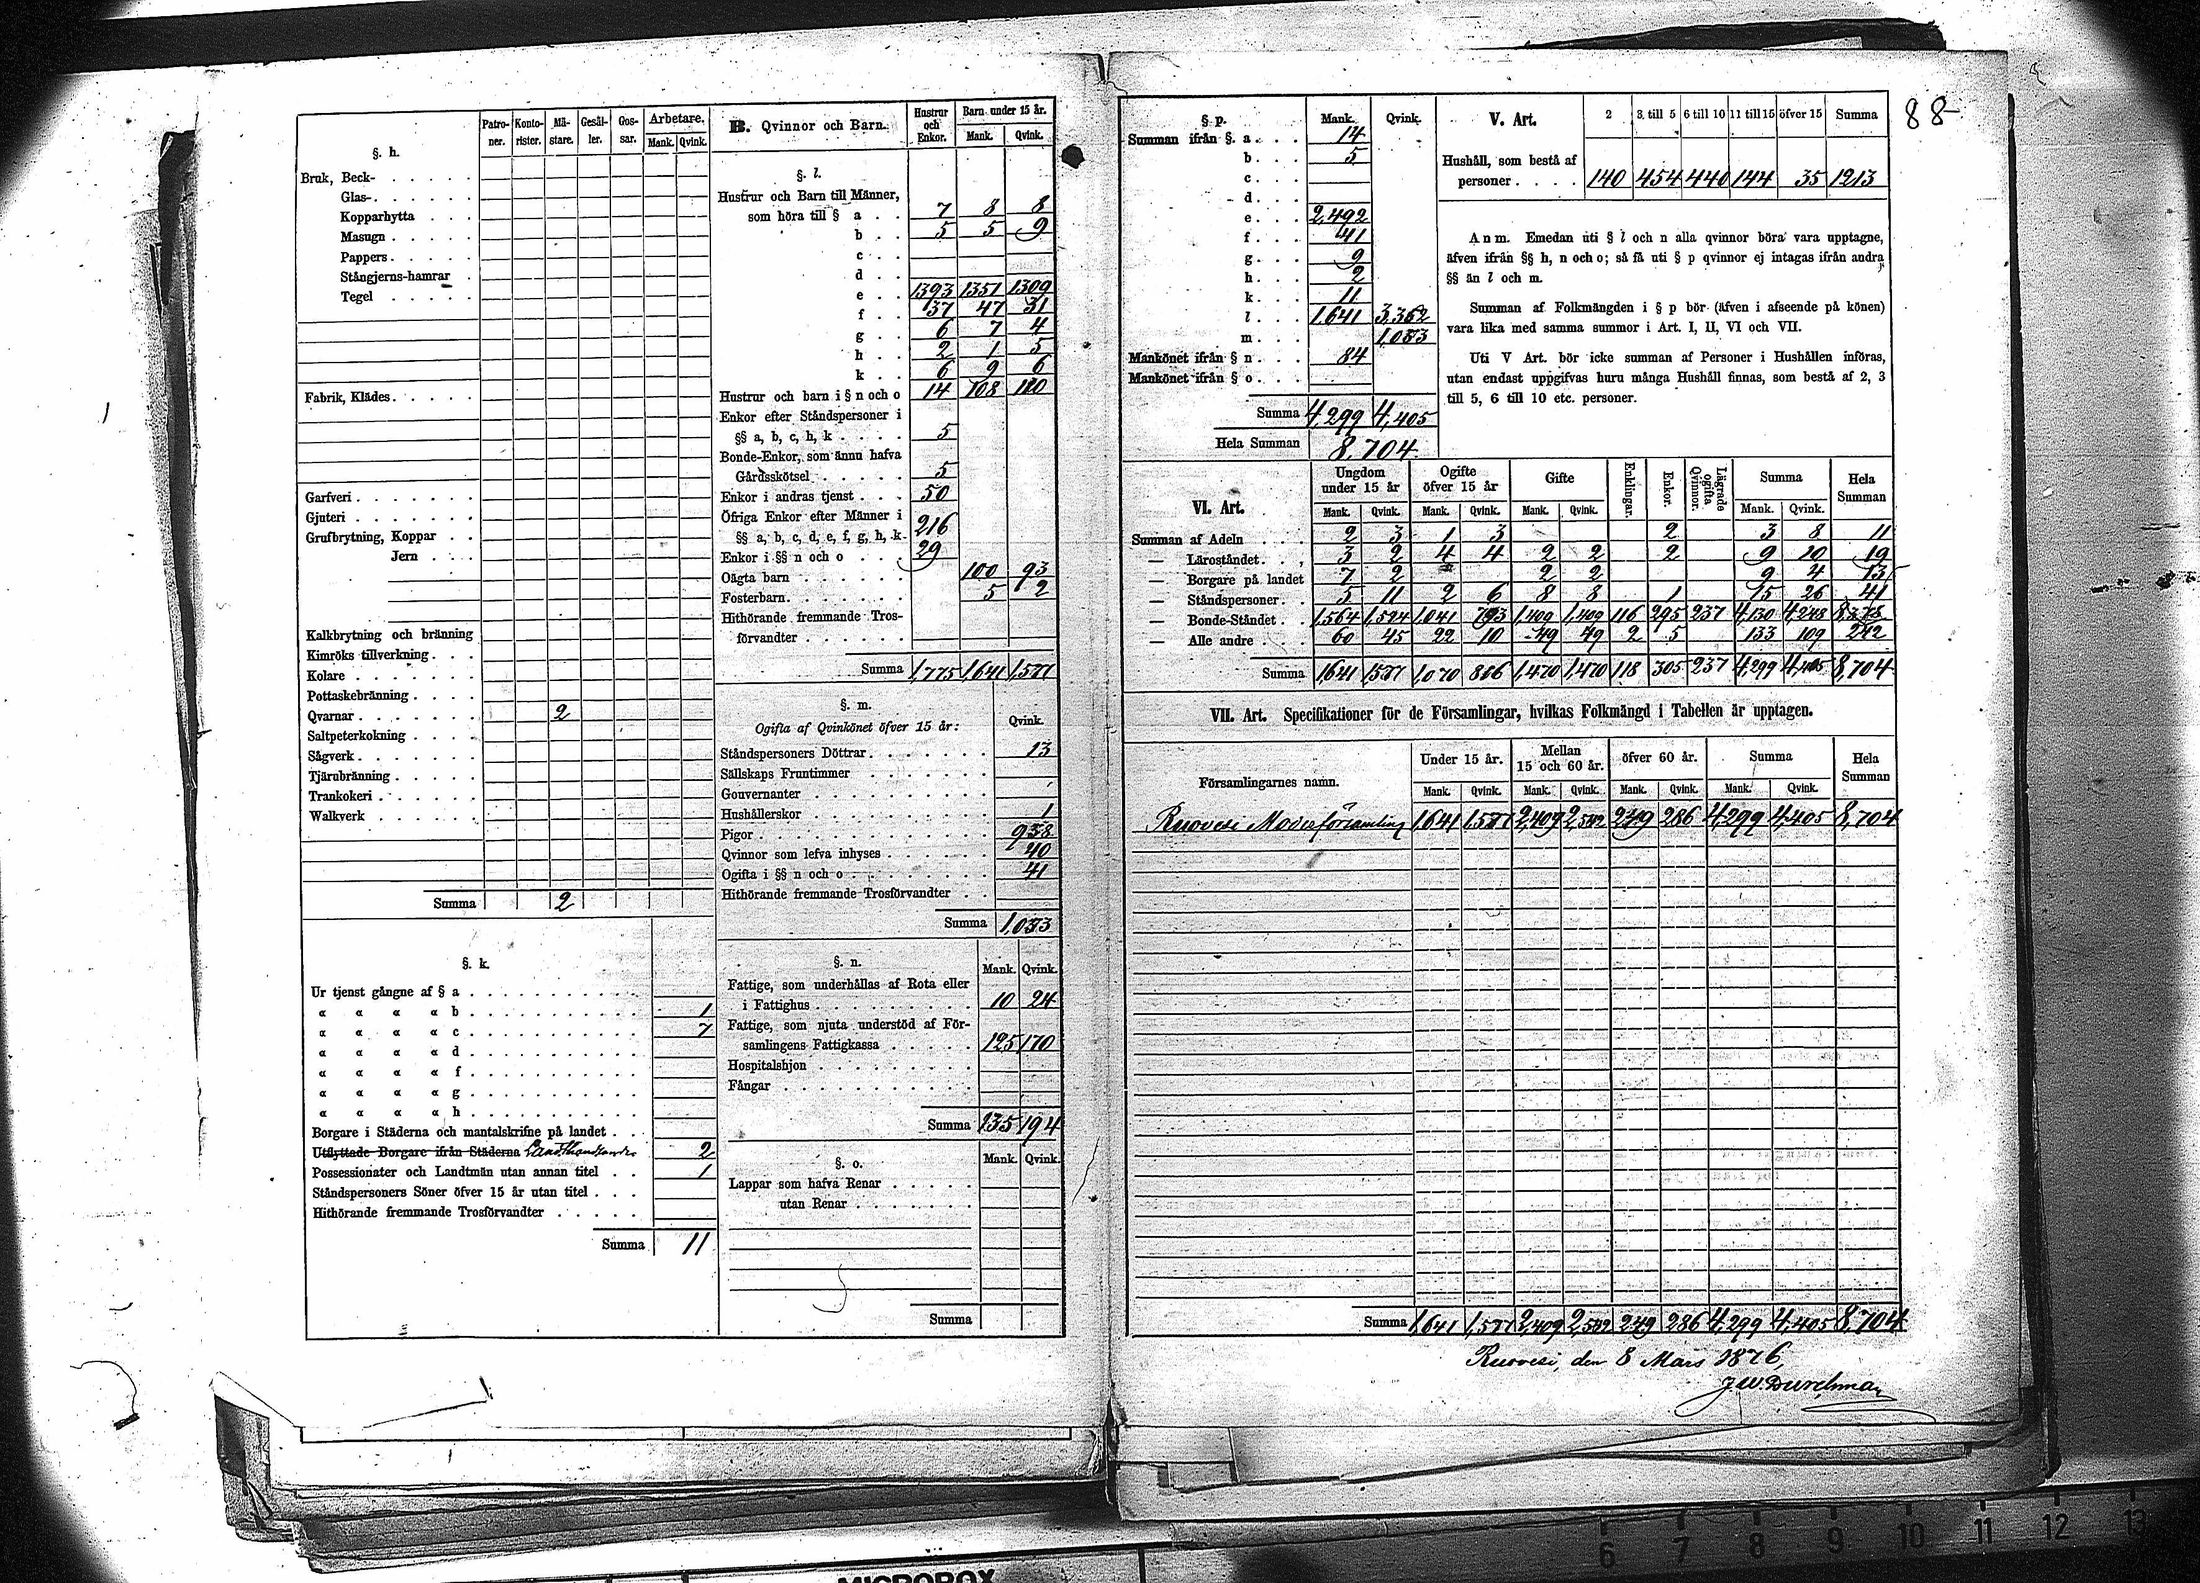 88
§. h.
Patro-ner. Konto-rister. Mä-stare. Gesäl-ler. Gos-sar. Arbetare. Mank. Qvink.
Bruk, Beck-
Glas-
Kopparhytta
Masugn
Pappers
Stångjerns-hamrar
Tegel
Fabrik, Klädes
Garfveri
Gjuteri
Grufbrytning, Koppar
Jern
Kalkbrytning och bränning
Kimröks tillverkning
Kolare
Pottaskebränning
Qvarnar 2
Saltpeterkokning
Sågverk
Tjärubränning
Trankokeri
Walkverk
Summa 2
§. k.
Ur tjenst gångne af § a
« « « « b 1
« « « « c 7
« « « « d
« « « « f
« « « « g
« « « « h
Borgare i Städerna och mantalskrifne på landet
Utflyttade Borgare ifrån Städerna Landthandlande 2
Possessionater och Landtmän utan annan titel 1
Ståndspersoners Söner öfver 15 år utan titel
Hithörande fremmande Trosförvandter
Summa 11
B. Qvinnor och Barn. Hustrur och Enkor. Barn under 15 år. Mank. Qvink.
§. l.
Hustrur och Barn till Männer,
som höra till § a 7 8 8
b 5 5 9
c
d
e 1393 1351 1309
f 37 47 31
g 6 7 4
h 2 1 5
k 6 9 6
Hustrur och barn i § n och o 14 108 120
Enkor efter Ståndspersoner i
§§ a, b, c, h, k 5
Bonde-Enkor, som ännu hafva
Gårdsskötsel 5
Enkor i andras tjenst 50
Öfriga Enkor efter Männer i
§§ a, b, c, d, e, f, g, h, k 216
Enkor i §§ n och o 29
Oägta barn 100 93
Fosterbarn 5 2
Hithörande fremmande Tros-
förvandter
Summa 1,775 1,641
§. m.
Ogifta af Qvinkönet öfver 15 år: Qvink.
Ståndspersoners Döttrar 13
Sällskaps Fruntimmer
Gouvernanter
Hushållerskor 1
Pigor
Qvinnor som lefva inhyses 40
Ogifta i §§ n och o 41
Hithörande fremmande Trosförvandter
Summa
§. n.
Mank. Qvink.
Fattige, som underhållas af Rota eller
i Fattighus 10 24
Fattige, som njuta understöd af För-
samlingens Fattigkassa 125 170
Hospitalshjon
Fångar
Summa 135 194
§. o. Mank. Qvink.
Lappar som hafva Renar
utan Renar
Summa
§ p. Mank. Qvink.
Summan ifrån §. a 14
b 5
c
d
e 2,492
f 41
g 9
h 2
k 11
l 1,641
m
Mankönet ifrån § n 84
Mankönet ifrån § o
Summa 4,299 4,405
Hela Summan 8,704
V. Art. 2 3 till 5 6 till 10 11 till 15 öfver 15 Summa
Hushåll, som bestå af
personer 140 454 440 144 35 1213
Anm. Emedan uti § l och n alla qvinnor böra vara upptagne,
äfven ifrån §§ h, n och o; så få uti § p qvinnor ej intagas ifrån andra
§§ än l och m.
Summan af Folkmängden i § p bör (äfven i afseende på könen)
vara lika med samma summor i Art. I, II, VI och VII.
Uti V Art. bör icke summan af Personer i Hushållen införas,
utan endast uppgifvas huru många Hushåll finnas, som bestå af 2, 3
till 5, 6 till 10 etc. personer.
VI. Art. Ungdom under 15 år Ogifte öfver 15 år Gifte Enklingar. Enkor. Lägrade ogifta Qvinnor. Summa Hela Summan
Mank. Qvink. Mank. Qvink. Mank. Qvink. Mank. Qvink.
Summan af Adeln 2 3 1 3 2 3 8 11
— Läroståndet 3 2 4 4 2 2 2 9 10 19
— Borgare på landet 7 2 2 2 9 4 13
— Ståndspersoner 5 11 2 6 8 8 1 15 26 41
— Bonde-Ståndet 1,564 1,041 1,409 1,409 116 295 237 4,130
— Alle andre 60 45 22 10 49 49 2 5 133 109 242
Summa 1641 1,070 1,470 1,470 118 305 237 4,299 4,405 8,704
VII. Art. Specifikationer för de Församlingar, hvilkas Folkmängd i Tabellen är upptagen.
Församlingarnes namn. Under 15 år. Mellan 15 och 60 år. öfver 60 år. Summa Hela Summan
Mank. Qvink. Mank. Qvink. Mank. Qvink. Mank. Qvink.
Ruovesi Moderförsamling 1,641 2,409 249 286 4,299 4,405 8,704
Summa 1,641 2,409 249 286 4,299 4,405 8,704
Ruovesi, den 8 Mars 1876,
J W Durchman
6 7 8 9 10 11 12 13
MICROBOX